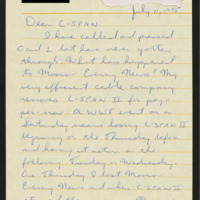 July 11, 1995
Dear C-SPAN:
I have called and pressed
0 and 2 but have never gotten
through. What has happened
to Morris Emery News? My
very efficient cable company
removes C-SPAN II for pay-
per-view. A WWF event on a
Saturday means losing C-SPAN II
beginning on the Thursday before
and having it return on the
following Tuesday or Wednesday.
One Thursday I lost Morris
Emery News and when C-SPAN II